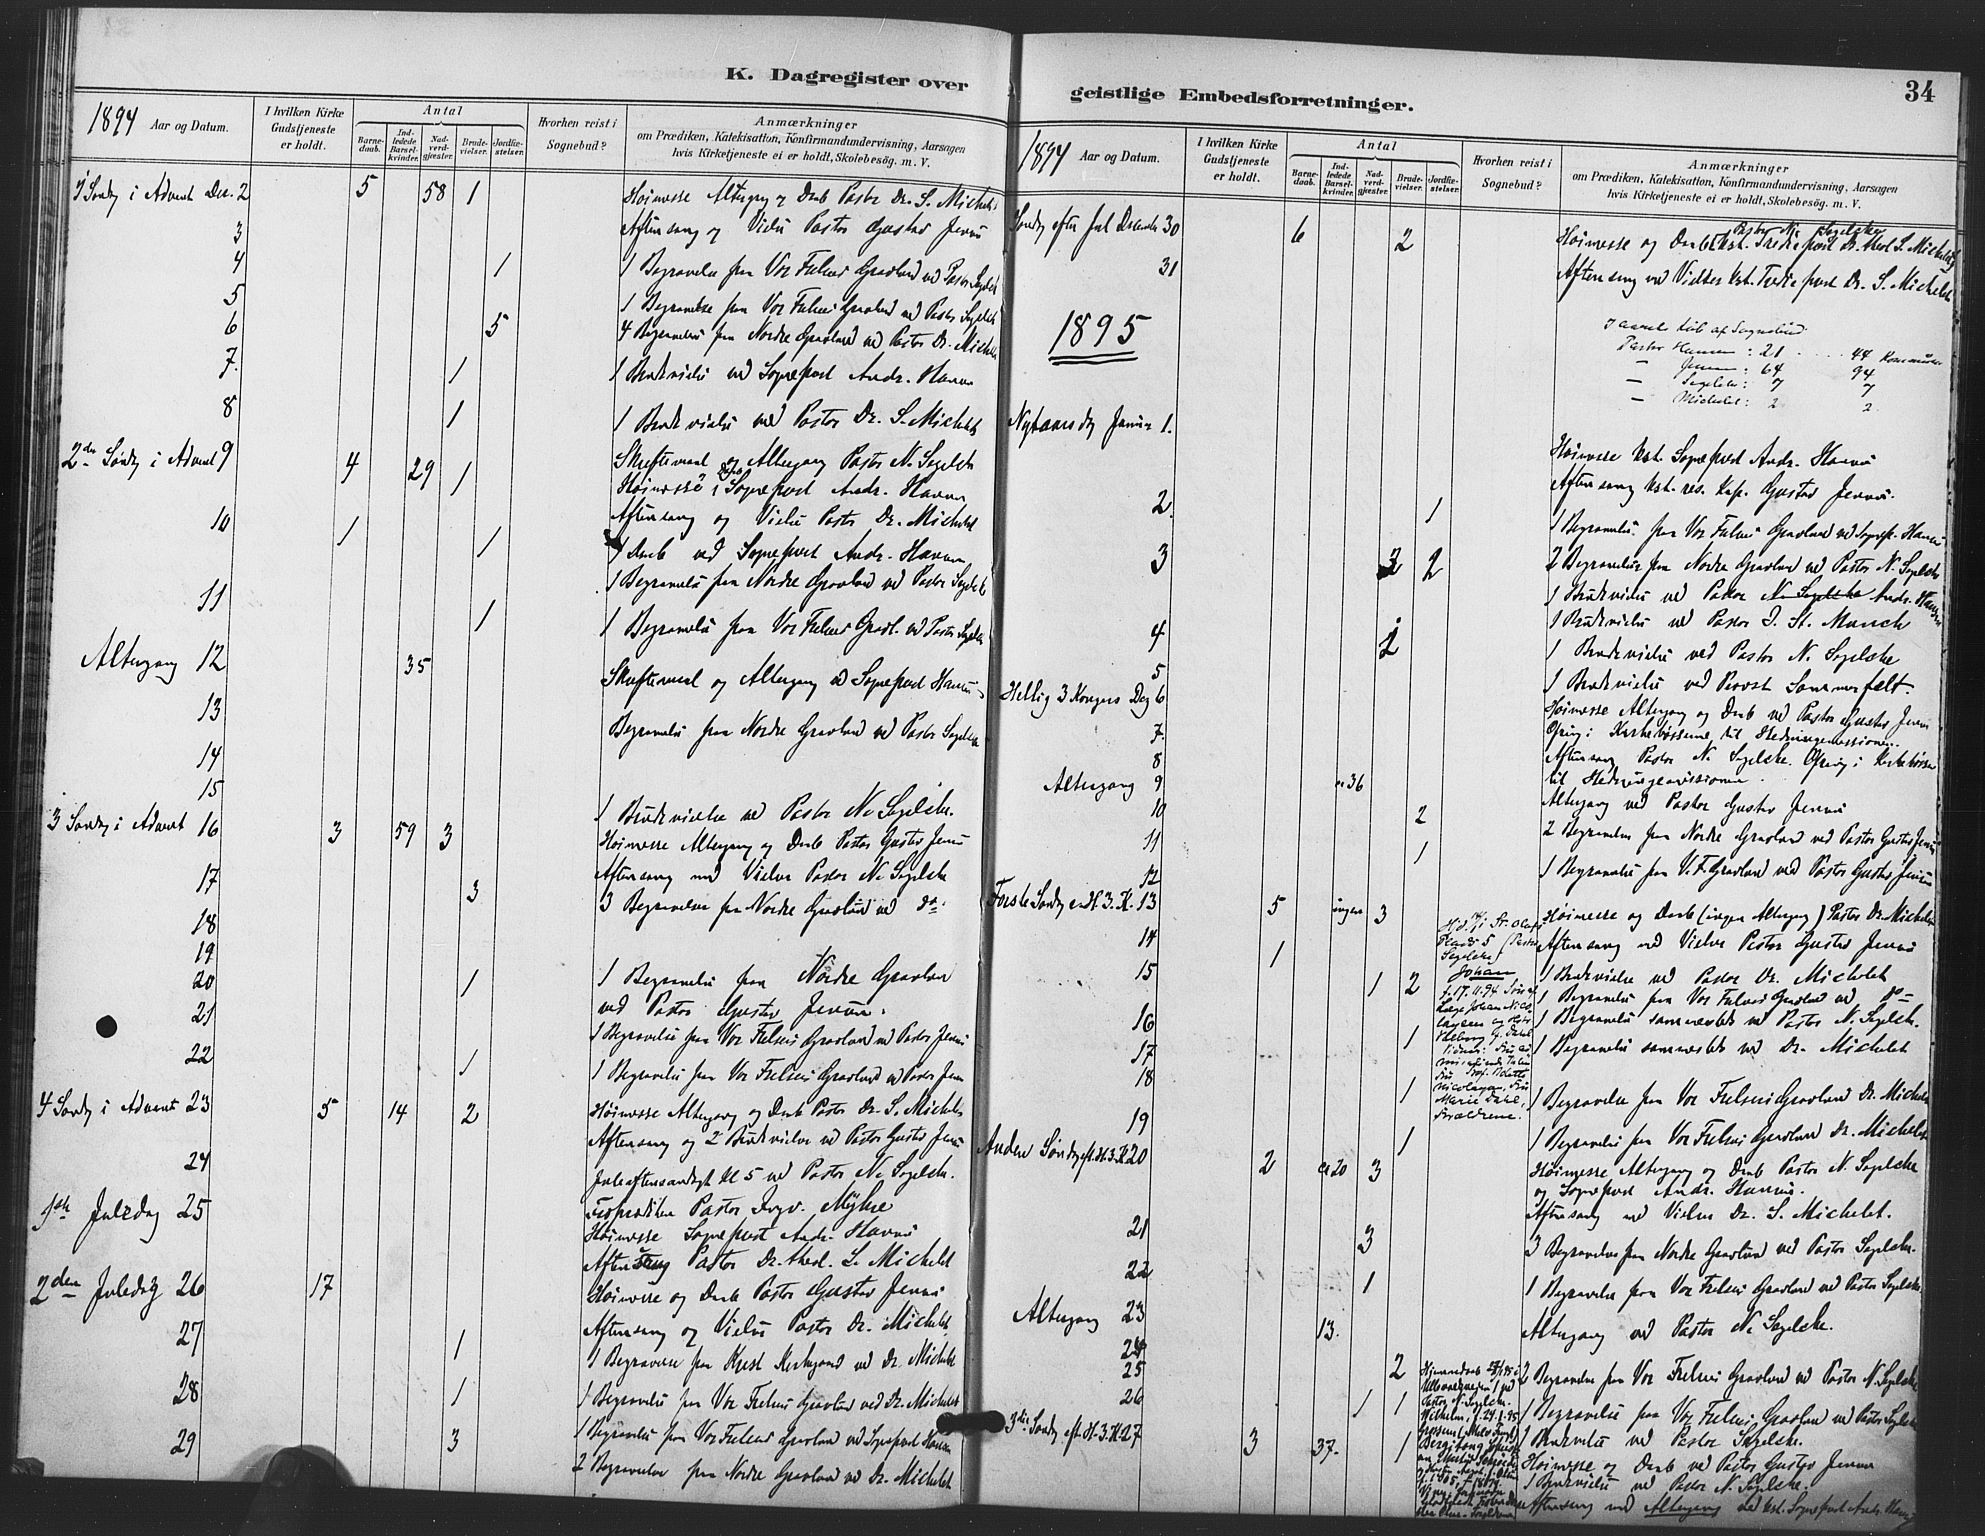 K. Dagregister over
1894 Aar og Datum.
I hvilken Kirke Gudstjeneste er holdt.
Antal
Barne-daab.
Ind-ledede Barsel-kvinder.
Nad-verd-gjester.
Brude-vielser.
Jordfæ-stelser.
Hvorhen reist i Sognebud?
Anmærkninger
om Prædiken, Katekisation, Konfirmandundervisning, Aarsagen
hvis Kirketjeneste ei er holdt, Skolebesög. m. V.
1 Søndg i Advent Dec. 2 5 58 1 Høimesse Altergang & Daab Pastor Dr. S. Michelet
3 Aftensang og Vielse Pastor Gustav Jensen
4 1 1 Begravelse fra Vor Frelsers Gravlund ved Pastor Segelcke
5 1 Begravelse fra Vor Frelsers Gravlund ved Pastor Segelcke
6 5 4 Begravelser fra Nordre Gravlund ved Pastor Dr. Michelet
7. 1 1 Brudevielse ved Sogneprest Andr. Hansen
8 1 1 Brudevielse ved Pastor Dr. S. Michelet
2den Søndg i Advent 9 4 29 1 Skriftemaal og Altergang Pastor N. Segelcke
Høimesse & Daab Sogneprest Andr. Hansen
Aftensang og Vielse Pastor Dr. Michelet
10 1 1 1 Daab ved Sogneprest Andr. Hansen
1 Begravelse fra Nordre Gravlund ved Pastor Segelcke
11 1 1 Begravelse fra Vor Frelsers Gravl. ved Pastor Segelcke
Altergang 12 35 Skriftemaal og Altergang ved Sogneprest Hansen
13 Begravelse fra Nordre Gravlund ved Pastor Segelcke
14
15 1 Brudevielse ved Pastor N. Segelcke.
3 Søndg i Advent 16 3 59 3 Høimesse Altergang og Daab Pastor Gustav Jensen
Aftensang med Vielse Pastor N. Segelcke
17 3 3 Begravelser fra Nordre Gravlund ved do.
18
19
20 1 1 Begravelse fra Nordre Gravlund
ved Pastor Gustav Jensen.
21 1 Begravelse fra Vor Frelsers Gravlund ved Pastor Jensen
22 1 1 Begravelse fra Vor Frelsers Gravlund ved Pastor Jensen
4 Søndg i Advent 23 5 14 2 Høimesse Altergang og Daab Pastor Dr. S. Michelet
Aftensang og 2 Brudevielser ved Pastor Gustav Jensen
24 Juleaftensandagt Kl 5 ved Pastor N. Segelcke.
1ste Juledag 25 Froprædiken Pastor Ingv. Myhre
Høimesse Sogneprest Andr. Hansen
Aftensang Pastor Dr. theol. S. Michelet
2den Juledag 26 17 Høimesse og Daab Pastor Gustav Jensen
Aftensang og Vielse Pastor Dr. Michelet
27 1 1 Begravelse fra Krist Kirkegaard ved Dr. Michelet
28 1 1 Begravelse fra Vor Frelsers Gravlund ved Dr. Michelet
29 3 1 Begravelse fra Vor Frelsers Gravlund ved Sogneprest Hansen
2 Begravelser fra Nordre Gravlund ved Dr. Michelet
geistlige Embedsforretninger.
34
1894 Aar og Datum.
I hvilken Kirke Gudstjeneste er holdt.
Antal
Barne-daab.
Ind-ledede Barsel-kvinder.
Nad-verd-gjester.
Brude-vielser.
Jordfæ-stelser.
Hvorhen reist i Sognebud?
Anmærkninger
om Prædiken, Katekisation, Konfirmandundervisning, Aarsagen
hvis Kirketjeneste ei er holdt, Skolebesög. m. V.
Pastor N. Segelcke
Søndg efter Jul December 30 6 2 Høimesse og Daab Kst. Tredieprest Dr. theol S. Michelet
31 Aftensang med Vielser kst. Tredieprest Dr. S. Michelet
I aarets Løb af Sognebud
Pastor Hansen : 21 44 Kommunik.
1895
— Jensen : 64 94
— Segelcke : 7 7
— Michelet : 2 2
Nytaarsdag Januar 1. Høimesse kst. Sogneprest Andr. Hansen
Aftensang kst. res. Kap. Gustav Jensen.
2. 1 1 Begravelse fra Vor Frelsers Gravlund ved Sognepr. Hansen
3 2 2 2 Begravelser fra Nordre Gravlund ved Pastor N. Segelcke
1 Brudevielse ved Pastor N. Segelcke Andr. Hansen
1 Brudevielse ved Pastor J. St. Munch
4 1 Brudevielse ved Pastor N. Segelcke
5 1 Brudevielse ved Provst Sommerfelt.
Hellig 3 Kongers Dag 6 Høimesse Altergang og Daab ved Pastor Gustav Jensen
Ofring i Kirkebøsserne til Hedningemissionen.
7. Aftensang Pastor N. Segelcke. Ofring i Kirkebøsser
8 til Hedningemissionen.
Altergang 9 ca 36 Altergang ved Pastor Gustav Jensen
10 2 2 Begravelser fra Nordre Gravlund ved Pastor Gustav Jensen
11 1 1 Begravelse fra V. F. Gravlund ved Pastor Gustav Jensen
12
Første Søndg e. H. 3. K. 13 5 ingen 3 Høimesse og Daab (ingen Altergang) Pastor Dr. Michelet
14 1 Aftensang med Vielser Pastor Gustav Jensen
15 1 2 1 Brudevielse ved Pastor Dr. Michelet
1 Begravelse fra Vor Frelsers Gravlund ved do
1 Begravelse sammesteds ved Pastor N. Segelcke.
16 1 1 Begravelse sammesteds ved Dr. Michelet
17
18 1 1 Begravelse fra Vor Frelsers Gravlund Dr. Michelet
St. Olafs
Plads 5 (Pastor
Segelcke)
Johan
f. 17.11.94
Marie Dahl,
Forældrene.
19 1 1 Begravelse fra Vor Frelsers Gravlund Dr. Michelet
Anden Søndag eft. H. 3. K. 20 2 ca 20 3 Høimesse Altergang og Daab Pastor N. Segelcke
og Sogneprest Andr. Hansen.
Aftensang med Vielser Dr. S. Michelet.
21 3 3 Begravelser fra Nordre Gravlund ved Pastor Segelcke.
22 1 1 Begravelse fra Vor Frelsers Gravlund ved Pastor Segelcke.
Altergang 23 13. Altergang ved Pastor N. Segelcke.
24
25 2 2 Begravelser fra Vor Frelsers Gravlund ved Pastor N. Segelcke
26 1 1 1 Begravelse fra Vor Frelsers Gravlund ved Pastor Segelcke
1 Brudevielse ved Pastor Segelcke.
3die Søndg eft H. 3. K. 27 3 37. 1 Høimesse og Daab ved Pastor Gustav Jensen
1 Brudevielse ved Pastor N. Segelcke.
Aftensang med Altergang ved kst. Sogneprest Andr. Hansen
Hjemmedaab
Ullevoldsveien
Pastor N. Segelcke.
Wilhelm, f. 24.1.95